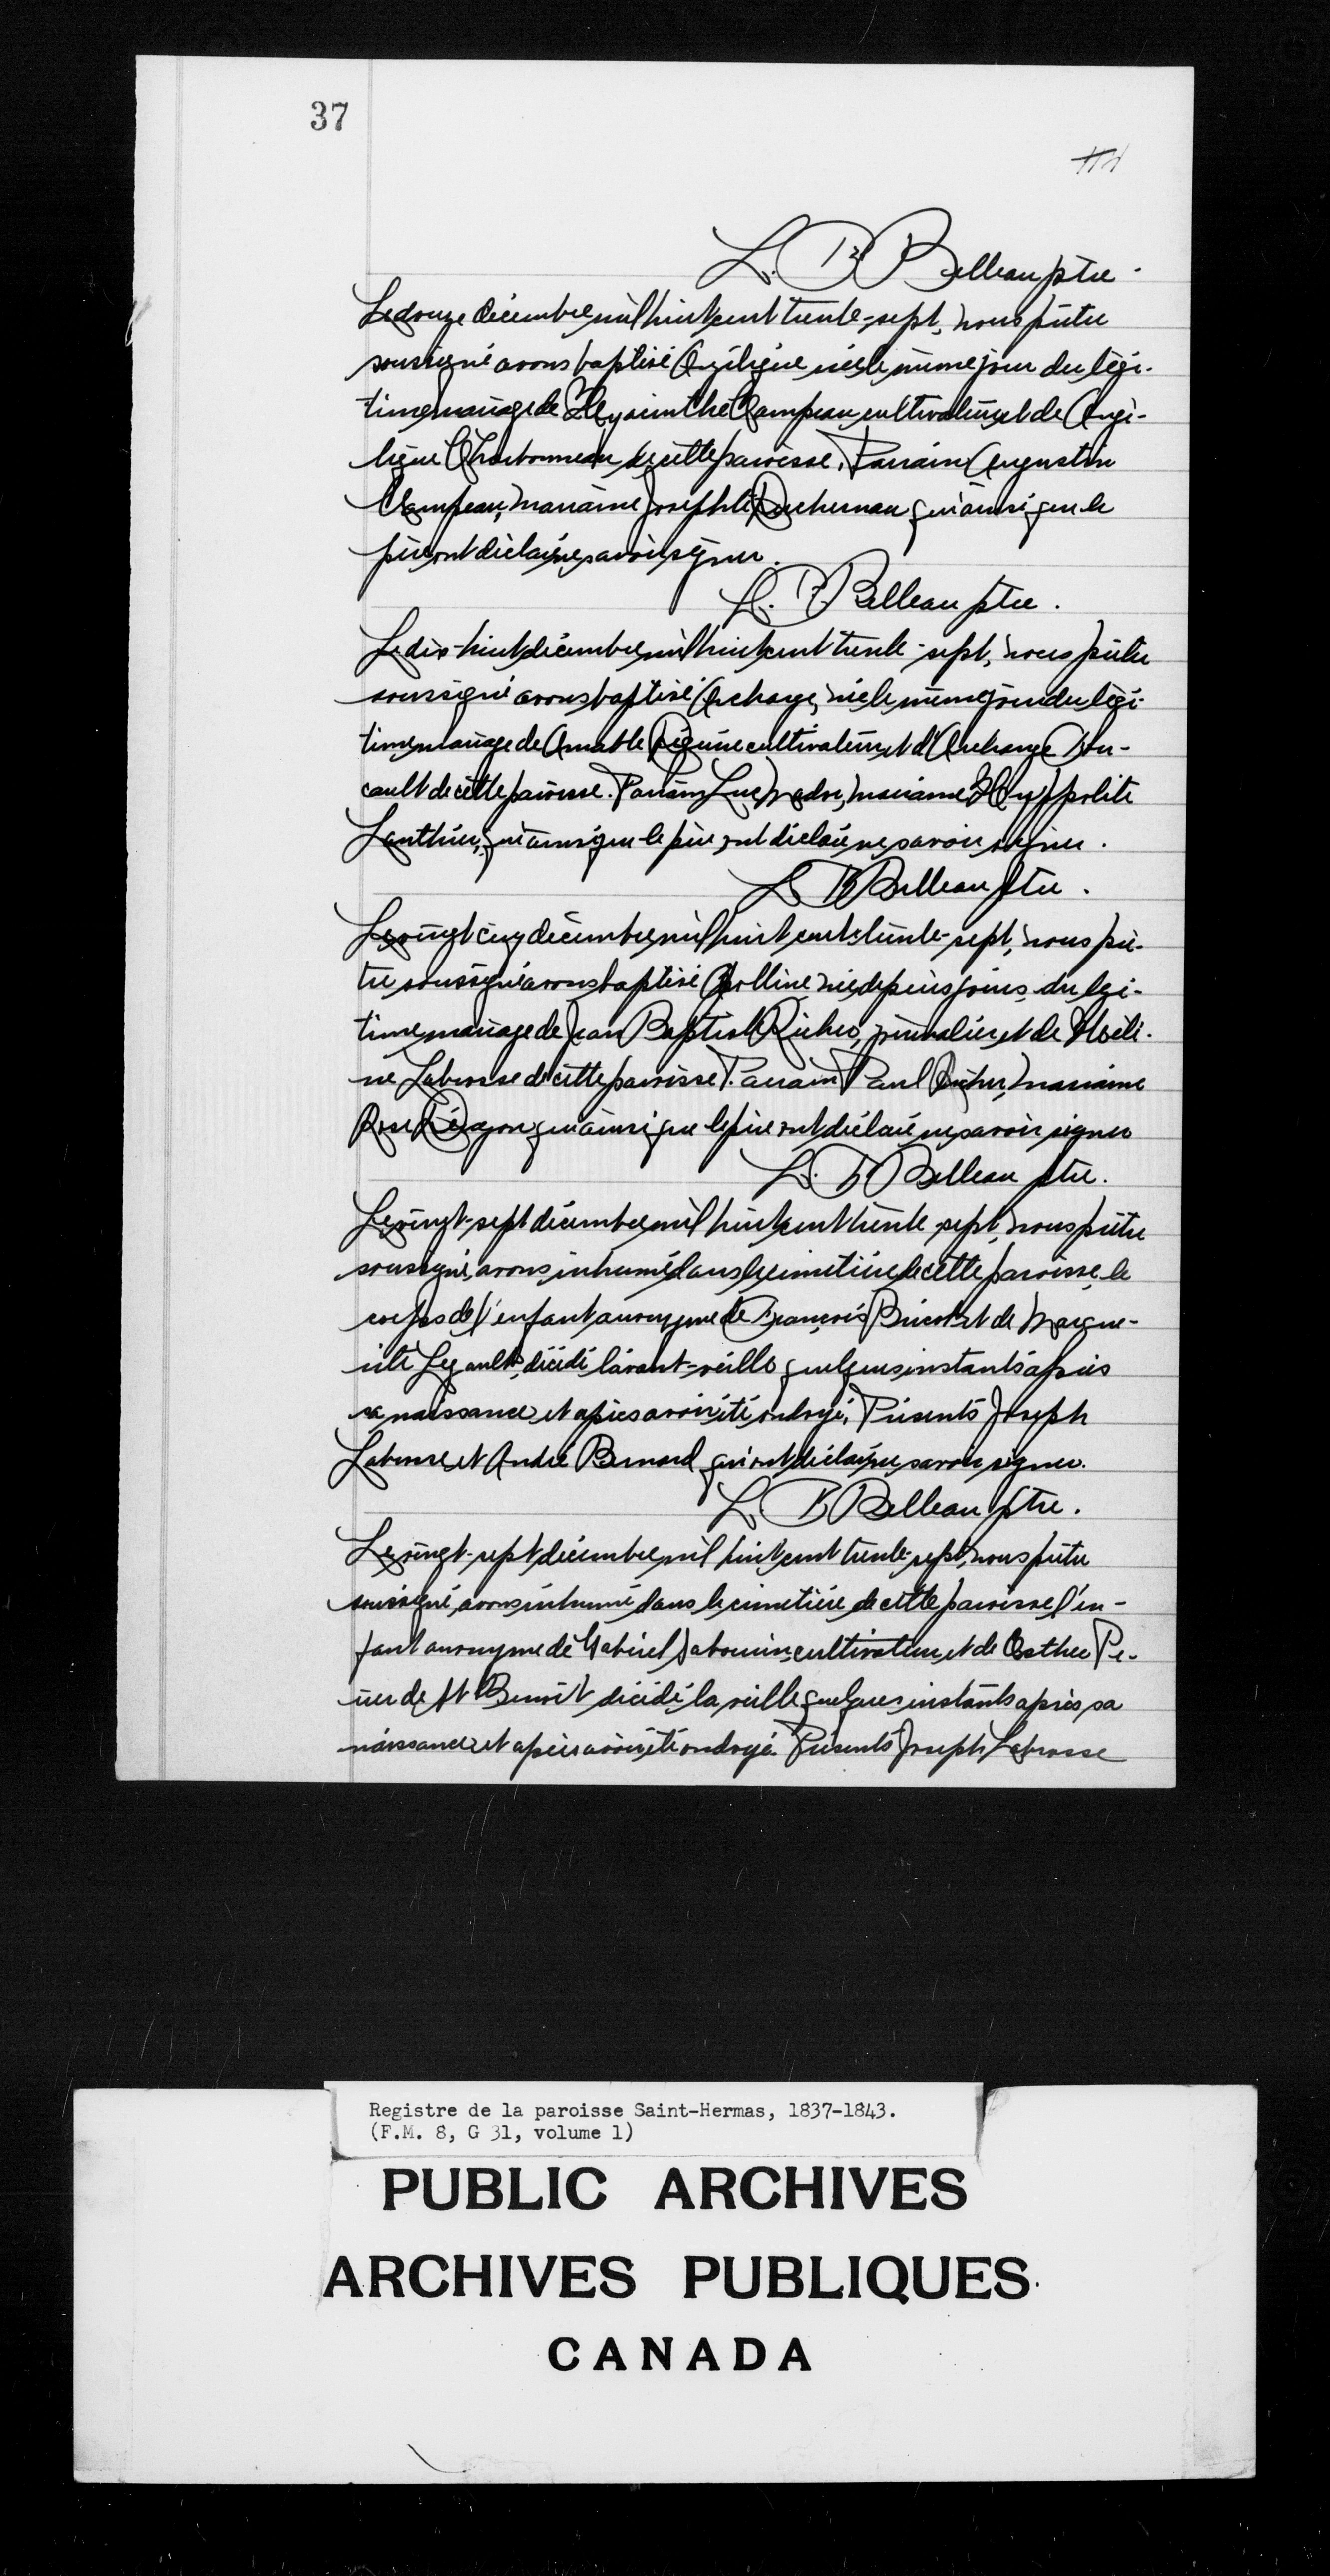 37
L. B. Belleau ptre.
Le douze décembre mil huit cent trente-sept, nous prêtre
soussigné avons baptisé Angélique née le même jour du légi-
time mariage de Hyacinthe Campeau cultivateur et de Angé-
lique Charbonneau de cette paroisse, Parrain Augustin
Campeau, marraine Josephte Ducherneau qui ainsi que le
père ont déclaré ne savoir signer.
L. B. Belleau ptre.
Le dix-huit décembre mil huit cent trente-sept, nous prêtre
soussigné avons baptisé Archange, née le même jour du légi-
time mariage de Amable cultivateur et d'Archange Bou-
cault de cette paroisse. Parrain Luc Nadon, marraine Hyppolite
Lanthier, qui ainsi que le père ont déclaré ne savoir signer.
L B Belleau ptre.
Le vingt cinq décembre mil huit cent trente-sept, nous prê-
tre soussigné avons baptisé née depuis jours, du légi-
time mariage de Jean Baptiste Richer, journalier et de Noëli-
ne Labrosse de cette paroisse. Parrain Paul Richer, marraine
Rose qui ainsi que le père ont déclaré ne savoir signer
L. B Belleau ptre.
Le vingt-sept décembre mil huit cent trente-sept, nous prêtre
soussigné, avons inhumé dans le cimetière de cette paroisse, le
corps de l'enfant anonyme de François Bricot et de Margue-
rite Legault, décédé l'avant-veille quelques instants après
sa naissance et après avoir été ondoyé. Présents Joseph
Labrosse et André Bernard qui ont déclaré ne savoir signer.
L. B Belleau ptre.
Le vingt-sept décembre mil huit cent trente-sept, nous prêtre
soussigné, avons inhumé dans le cimetière de cette paroisse l'en-
fant anonyme de Gabriel Sabourin, cultivateur, et de Esther Pe-
rier de St Benoît décédé la veille quelques instants après sa
naissance et après avoir été ondoyé. Présents Joseph Labrosse
Registre de la paroisse Saint-Hermas, 1837-1843.
(F.M. 8, G 31, volume 1)
PUBLIC ARCHIVES
ARCHIVES PUBLIQUES
CANADA